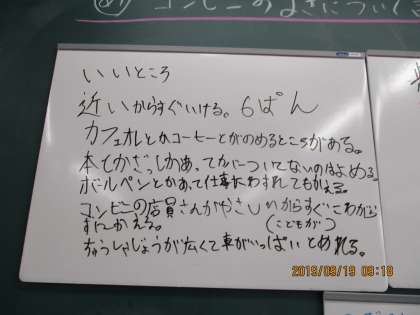 コンビニのよさについて
いいところ
近いからすぐいける。6ぱん
カフェオレとかコーヒーとかがのめるところがある。
本とかざっしかあってカバーついてないのはよめる。
ボールペンとかあって仕事にわすれてもかえる。
コンビニの店員さんがやさしいからすぐこわがら
ずにかえる。(こどもが)
ちゅうしゃじょうが広くて車がいっぱいとめれる。
2018/09/19 09:18